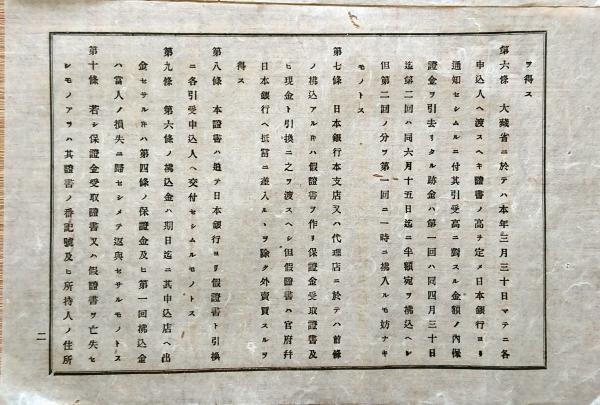 ヲ得ス
第六條　大藏省ニ於テハ本年三月三十日マテニ各
申込人ヘ渡スヘキ證書ノ高ヲ定メ日本銀行ヨリ
通知セシムルニ付其引受高ニ對スル金額ノ內保
證金ヲ引去リタル跡金ハ第一回ハ同四月三十日
迄第二回ハ同六月十五日迄ニ半額宛ヲ拂込ヘシ
但第二回ノ分ヲ第一回ニ一時ニ拂入ルモ妨ナキ
モノトス
第七條　日本銀行本支店又ハ代理店ニ於テハ前條
ノ拂込アルトキハ假證書ヲ作リ保證金受取證書及
ヒ現金ト引換ニ之ヲ渡スヘシ但假證書ハ官府幷
日本銀行ヘ抵當ニ差入ルヽヲ除ク外賣買スルヲ
得ス
第八條　本證書ハ追テ日本銀行ヨリ假證書ト引換
ニ各引受申込人ヘ交付セシムルモノトス
第九條　第六條ノ拂込金ハ期日迄ニ其申込店ヘ出
金セサルトキハ第四條ノ保證金及ヒ第一回拂込金
ハ當人ノ損失ニ歸セシメテ返與セサルモノトス
第十條　若シ保證金受取證書又ハ假證書ヲ亡失セ
シモノアラハ其證書ノ番記號及ヒ所持人ノ住所
二